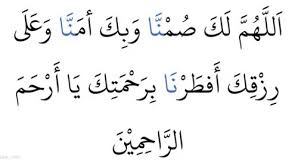 اَللَّهُمَّ لَكَ صُمْنَّا وَبِكَ أمَنَّا وَعَلَى
رِزْقِكَ أَفطَرْنَا بِرَحْمَتِكَ يَا أَرْحَمَ
الرَّاحِمِيْنَ